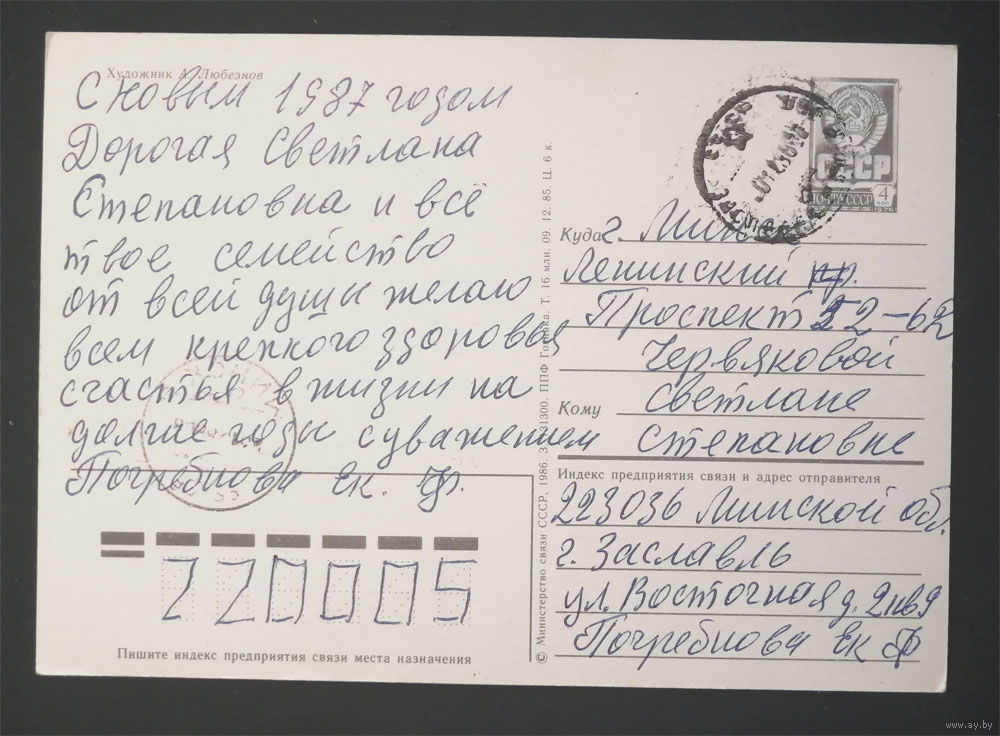 Художник А. Любезнов
С Новым 1987 годом
Дорогая Светлана
Степановна и всё
твоё семейство
от всей душы желаю
всем крепкого здоровья,
счастья в жизни на
долгие годы с уважением
Погребнова Ек. Ф.
220005
Пишите индекс предприятия связи места назначения
© Министерство связи СССР, 1986. З. ППФ Гознака. Т. 16 млн. 09. 12. 85. Ц. 6 к.
СССР
ПОЧТА СССР 4 коп
1976
Куда г. Минск
Ленинский пр.
Проспект 52-62
Червяковой
Кому Светлане
Степановне
Индекс предприятия связи и адрес отправителя
223036 Минской обл.
г. Заславль
ул. Восточная д. 2 кв 9
Погребнова Ек Ф
www.ay.by